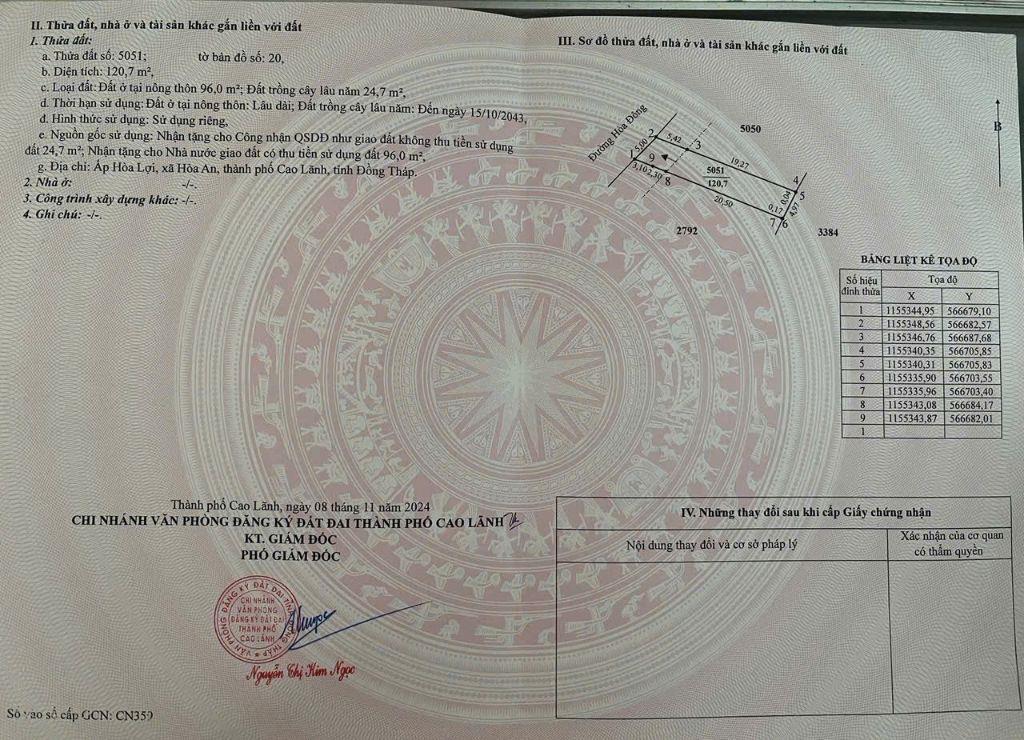 II. Thửa đất, nhà ở và tài sản khác gắn liền với đất
1. Thửa đất:
a. Thửa đất số: 5051; tờ bản đồ số: 20,
b. Diện tích: 120,7 m²,
c. Loại đất: Đất ở tại nông thôn 96,0 m²; Đất trồng cây lâu năm 24,7 m²,
d. Thời hạn sử dụng: Đất ở tại nông thôn: Lâu dài; Đất trồng cây lâu năm: Đến ngày 15/10/2043,
đ. Hình thức sử dụng: Sử dụng riêng,
e. Nguồn gốc sử dụng: Nhận tặng cho Công nhận QSDĐ như giao đất không thu tiền sử dụng
đất 24,7 m²; Nhận tặng cho Nhà nước giao đất có thu tiền sử dụng đất 96,0 m²,
g. Địa chỉ: Ấp Hòa Lợi, xã Hòa An, thành phố Cao Lãnh, tỉnh Đồng Tháp.
2. Nhà ở: -/-.
3. Công trình xây dựng khác: -/-.
4. Ghi chú: -/-.
III. Sơ đồ thửa đất, nhà ở và tài sản khác gắn liền với đất
Đường Hòa Đông
5050
B
2
5,42
3
5,00
1
9
3,10
2,30
8
19,27
5051
120,7
20,50
4
5
0,04
4,97
0,17
7
6
2792
3384
BẢNG LIỆT KÊ TỌA ĐỘ
Số hiệu đỉnh thửa Tọa độ
X Y
1 1155344,95 566679,10
2 1155348,56 566682,57
3 1155346,76 566687,68
4 1155340,35 566705,85
5 1155340,31 566705,83
6 1155335,90 566703,55
7 1155335,96 566703,40
8 1155343,08 566684,17
9 1155343,87 566682,01
1
Thành phố Cao Lãnh, ngày 08 tháng 11 năm 2024
CHI NHÁNH VĂN PHÒNG ĐĂNG KÝ ĐẤT ĐAI THÀNH PHỐ CAO LÃNH
KT. GIÁM ĐỐC
PHÓ GIÁM ĐỐC
VĂN PHÒNG ĐĂNG KÝ ĐẤT ĐAI TỈNH ĐỒNG THÁP
CHI NHÁNH
VĂN PHÒNG
ĐĂNG KÝ ĐẤT ĐAI
THÀNH PHỐ
CAO LÃNH
Nguyễn Thị Kim Ngọc
IV. Những thay đổi sau khi cấp Giấy chứng nhận
Nội dung thay đổi và cơ sở pháp lý
Xác nhận của cơ quan
có thẩm quyền
Số vào sổ cấp GCN: CN359